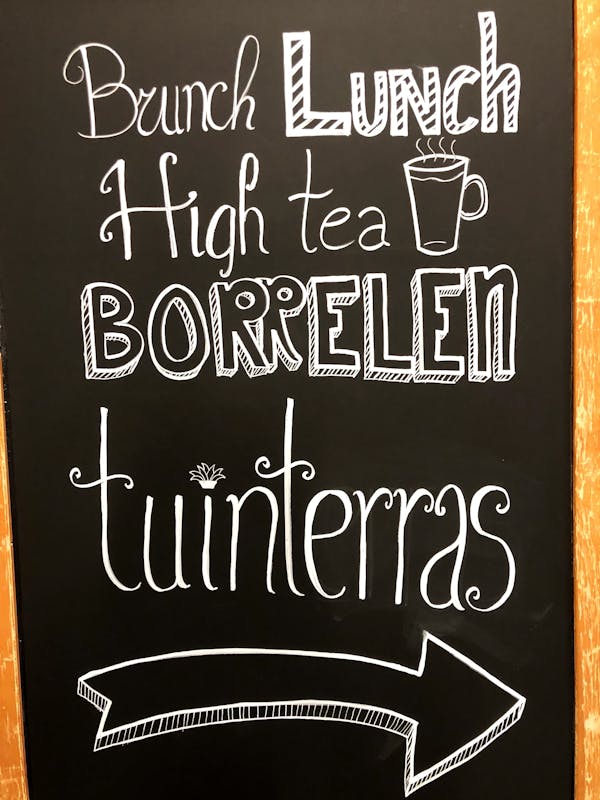 Brunch Lunch
High tea
BORRELEN
tuinterras